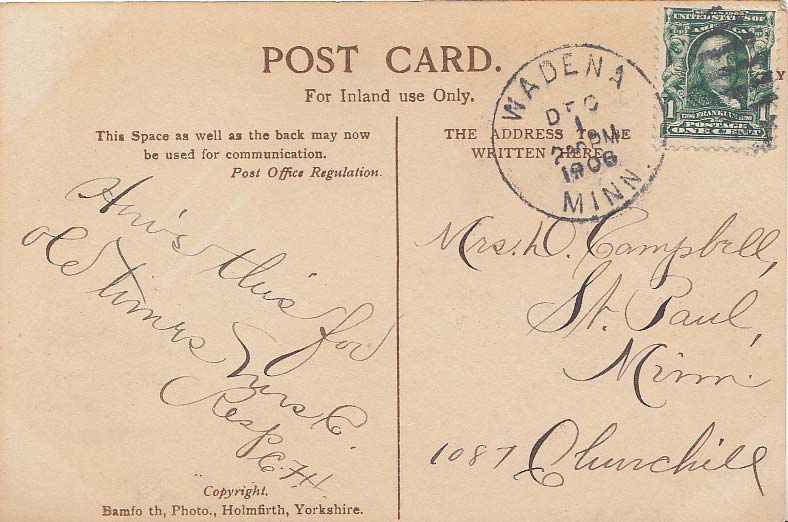 POST CARD.
For Inland use Only.
This Space as well as the back may now
be used for communication.
Post Office Regulation.
How's this for
old timers
Mrs C.
Resp
C.H.
Copyright.
Bamfo th, Photo., Holmfirth, Yorkshire.
WADENA
DEC
1
2 PM
1906
MINN.
UNITED STATES OF
AMERICA
1
FRANKLIN
1
POSTAGE
ONE CENT
THE ADDRESS TO BE
WRITTEN HERE.
Mrs. D. Campbell,
St. Paul,
Minn.
1087 Churchill